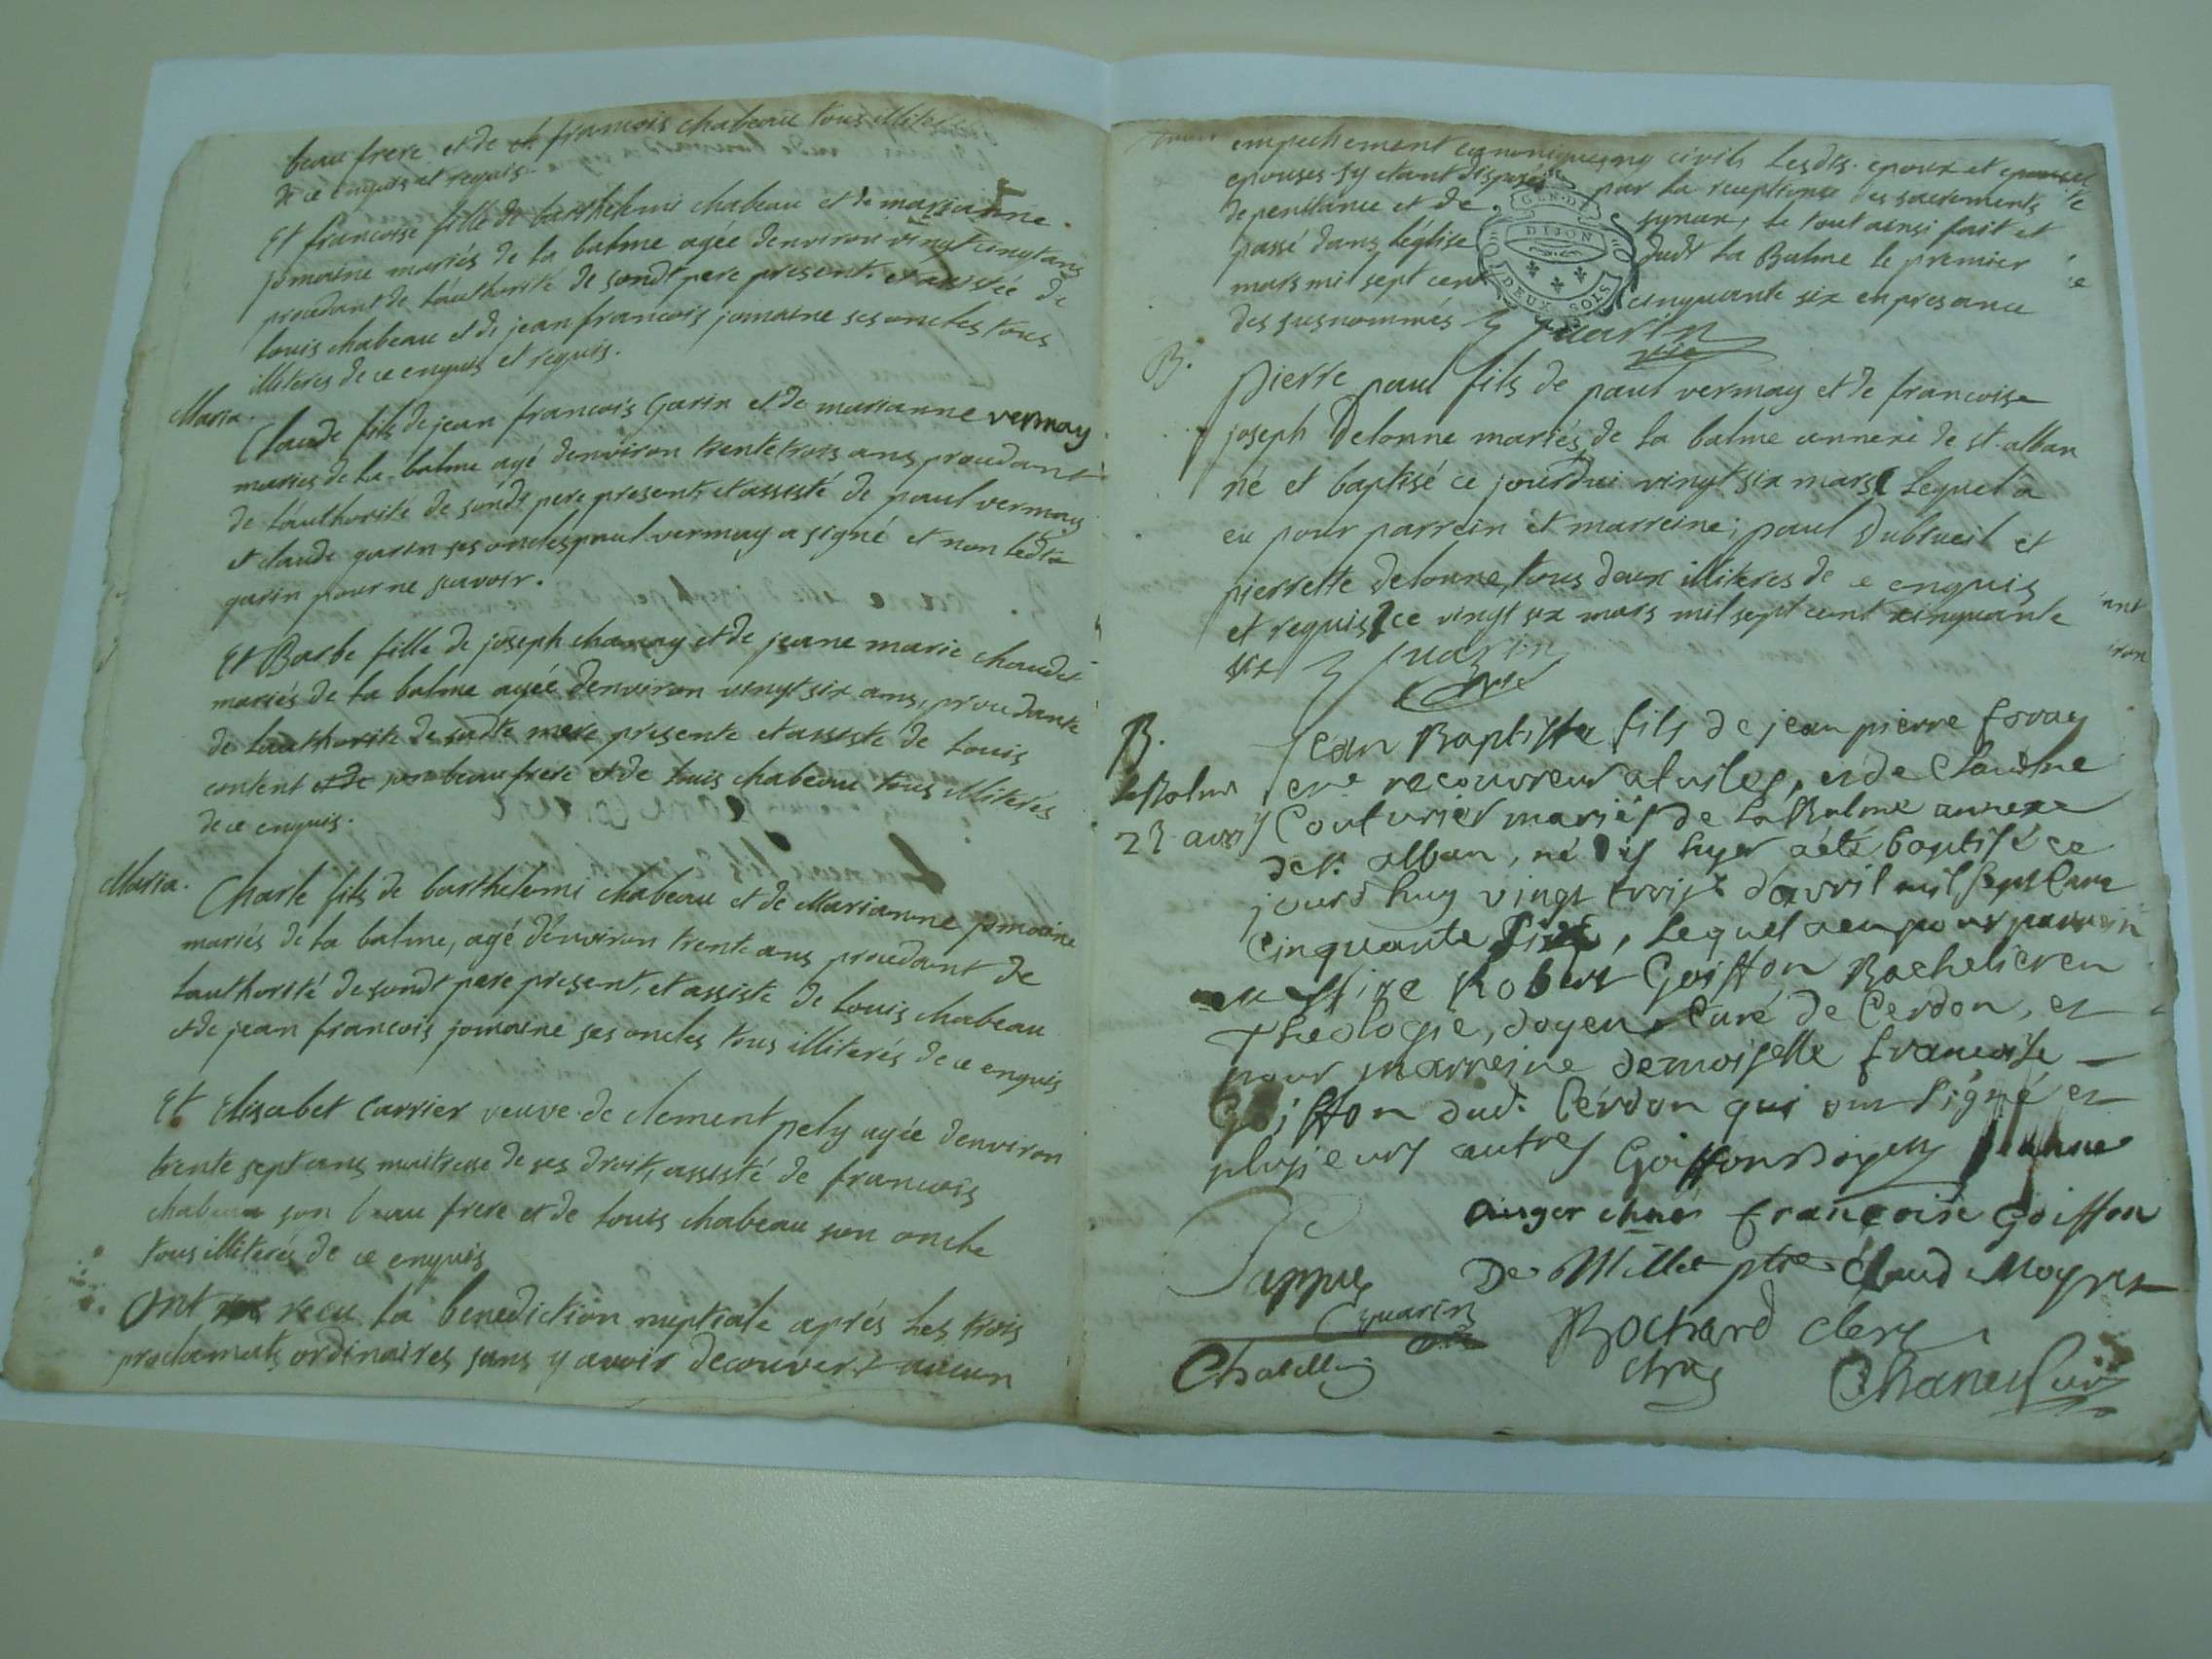 beau frere et de françois chabeau tous illiteres
de ce enquis et requis.
Et francoise fille de barthelemi chabeau et de marianne
jomaine mariés de la balme agée denviron vingt cinq ans
procedant de lauthorité de sondt pere present et assistée de
louis chabeau et de jean francois jomaine ses oncles tous
illiteres de ce enquis et requis.
Maria.
Claude fils de jean francois Garin et de marianne vermay
mariés de la balme agé denviron trente trois ans procedant
de lauthorité de sondt pere present, et assisté de paul vermay
et claude garin ses oncles paul vermay a signé et non ledt
garin pour ne scavoir.
Et Barbe fille de joseph chanay et de jeane marie chaudet
mariés de la balme agée denviron vingt six ans, procedante
de lauthorité de sadte mere presente et assiste de louis
content son beau frere et de louis chabeau tous illiterés
de ce enquis.
Maria.
Charle fils de barthelemi chabeau et de Marianne jomaine
mariés de la balme, agé denviron trente ans procedant de
lauthorité de sondt pere present, et assiste de louis chabeau
et de jean francois jomaine ses oncles tous illiterés de ce enquis
Et Elisabet Carrier veuve de clement pely agée denviron
trente sept ans maitresse de ses droit, assisté de francois
chabeau son beau frere et de louis chabeau son oncle
tous illiterés de ce enquis
Ont recu la benediction nuptiale aprés les trois
proclamats ordinaires sans y avoir decouvert aucun
empechement canoniques ny civils lesdts epoux et
epouses sy etant disposés par la reception des sacrements
de penitance et de synaxe, le tout ainsi fait et
passé dans léglise dudt la Balme le premier
mars mil sept cent cinquante six en presance
des susnommés Guarin
GEN. DE
DIJON
DEUX SOLS
B.
Pierre paul fils de paul vermay et de francoise
joseph Delonne mariés de la balme annexe de st. alban
né et baptisé ce jourdhui vingt six mars lequel a
eu pour parrein et marreine; paul Dubrueil et
pierrette delonne, tous deux illiteres de ce enquis
et requis ce vingt six mars mil sept cent cinquante
six Guarin
B.
la Balme
23 avril
Jean Baptiste fils de jean pierre
recouvreur a tuiles, et de Claudine
Couturier mariés de la Balme annexe
de st. alban, né hyer a été baptisé ce
jourdhuy vingt trois d'avril mil sept cent
cinquante six, lequel a eu pour parrein
messire Robert Goiffon Bachelier en
Theologie, doyen Curé de Cerdon, et
pour marreine demoiselle francoise
Goiffon dudt Cerdon qui ont signé et
plusieurs autres Goiffon Doyen
francoise Goiffon
De Millet ptre Claud
Guarin
Bochard clerc